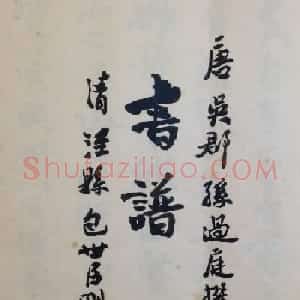 唐吳郡孫過庭撰
書譜
清涇縣包世臣刪
Shufaziliao.com